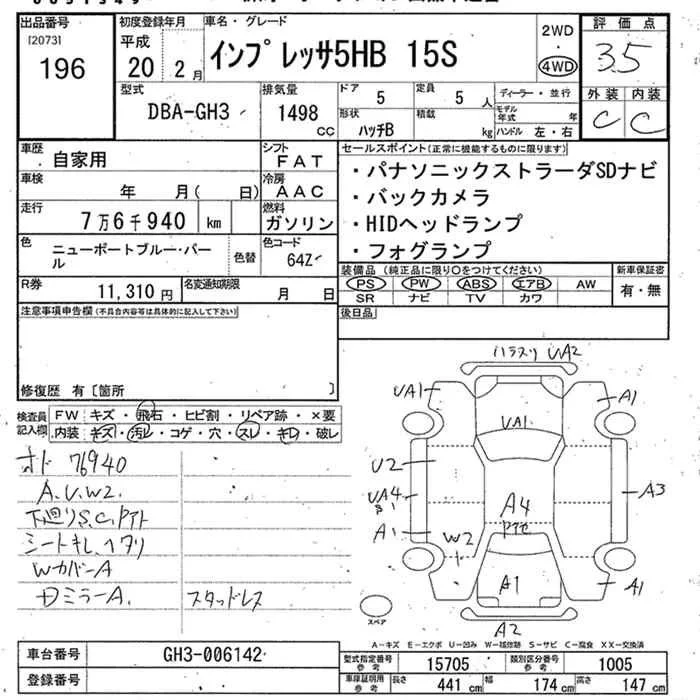 出品番号
[2073]
196
初度登録年月
平成
20 2月
車名・グレード
インプレッサ5HB 15S
2WD
4WD
評価点
3.5
外装 内装
C C
型式
DBA-GH3
排気量
1498
CC
ドア
5
定員
5 人
形状
ハッチB
積載
kg
ディーラー・並行
モデル年式 年
ハンドル 左・右
車歴
自家用
シフト
FAT
車検
年 月( 日)
冷房
AAC
走行
7万6千940 km
燃料
ガソリン
色
ニューポートブルー・パール
色替
色コード
64Z
R券
11,310 円
名変通知期限
月 日
セールスポイント(正常に機能するものに限ります)
・パナソニックストラーダSDナビ
・バックカメラ
・HIDヘッドランプ
・フォグランプ
装備品(純正品に限り○をつけてください)
新車保証書
PS PW ABS エアB AW
SR ナビ TV カワ
有・無
後日品
注意事項申告欄(不具合内容等は具体的に記入して下さい)
修復歴 有〔箇所 〕
検査員記入欄
FW キズ・飛石・ヒビ割・リペア跡・×要
内装 キズ・汚レ・コゲ・穴・スレ・キレ・破レ
オド 76940
A.U.W2.
下廻りS.C.Pアト
シートキレ.ヘタリ
WカバーA
DミラーA.
スタッドレス
UA2
UA1
A1
UA1
U2
UA4
A1
A3
A4
W2
A1
A1
A2
スペア
A-キズ E-エクボ U-凹み W-補修跡 S-サビ C-腐食 XX-交換済
車台番号
GH3-006142
登録番号
型式指定番号 参考
15705
類別区分番号 参考
1005
車庫証明用 参考
長さ 441 cm 幅 174 cm 高さ 147 cm